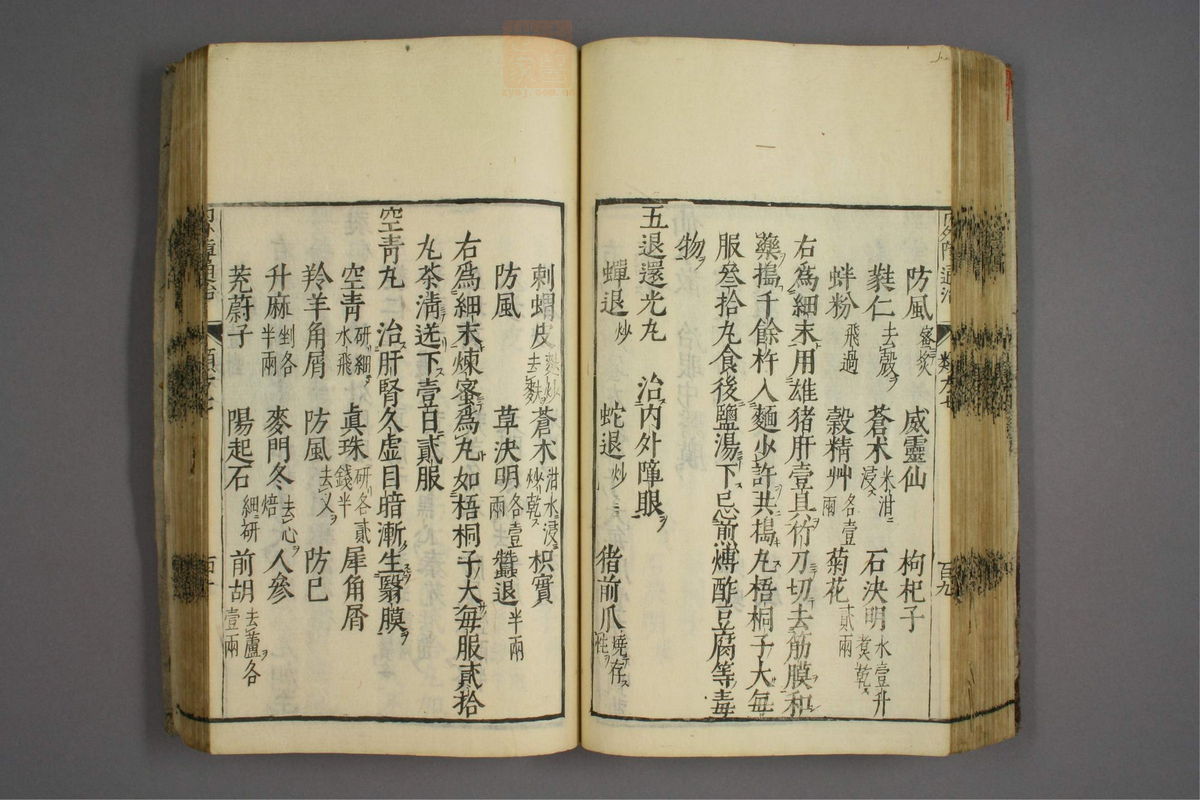 防風蜜炙 威靈仙 枸杞子
蕤仁去殼 蒼朮米泔浸 石決明水壹升煑乾
蚌粉飛過 穀精艸各壹兩 菊花貳兩
右爲細末用雄猪肝壹具竹刀切去筋膜和
藥搗千餘杵入麵少許共搗丸梧桐子大每
服叄拾丸食後鹽湯下忌煎煿酢豆腐等毒
物
五退還光丸 治内外障眼
蟬退炒 蛇退炒 猪前爪燒存性
刺蝟皮麩炒去麩 蒼朮泔水浸炒乾 枳實
防風 草決明各壹兩 蠶退半兩
右爲細末煉蜜爲丸如梧桐子大每服貳拾
丸茶清送下壹日貳服
空青丸 治肝腎久虛目暗漸生翳膜
空青研細水飛 眞珠研各貳錢半 犀角屑
羚羊角屑 防風去叉 防巳
升麻剉各半兩 麥門冬去心焙 人參
茺蔚子 陽起石細研 前胡去蘆各壹兩